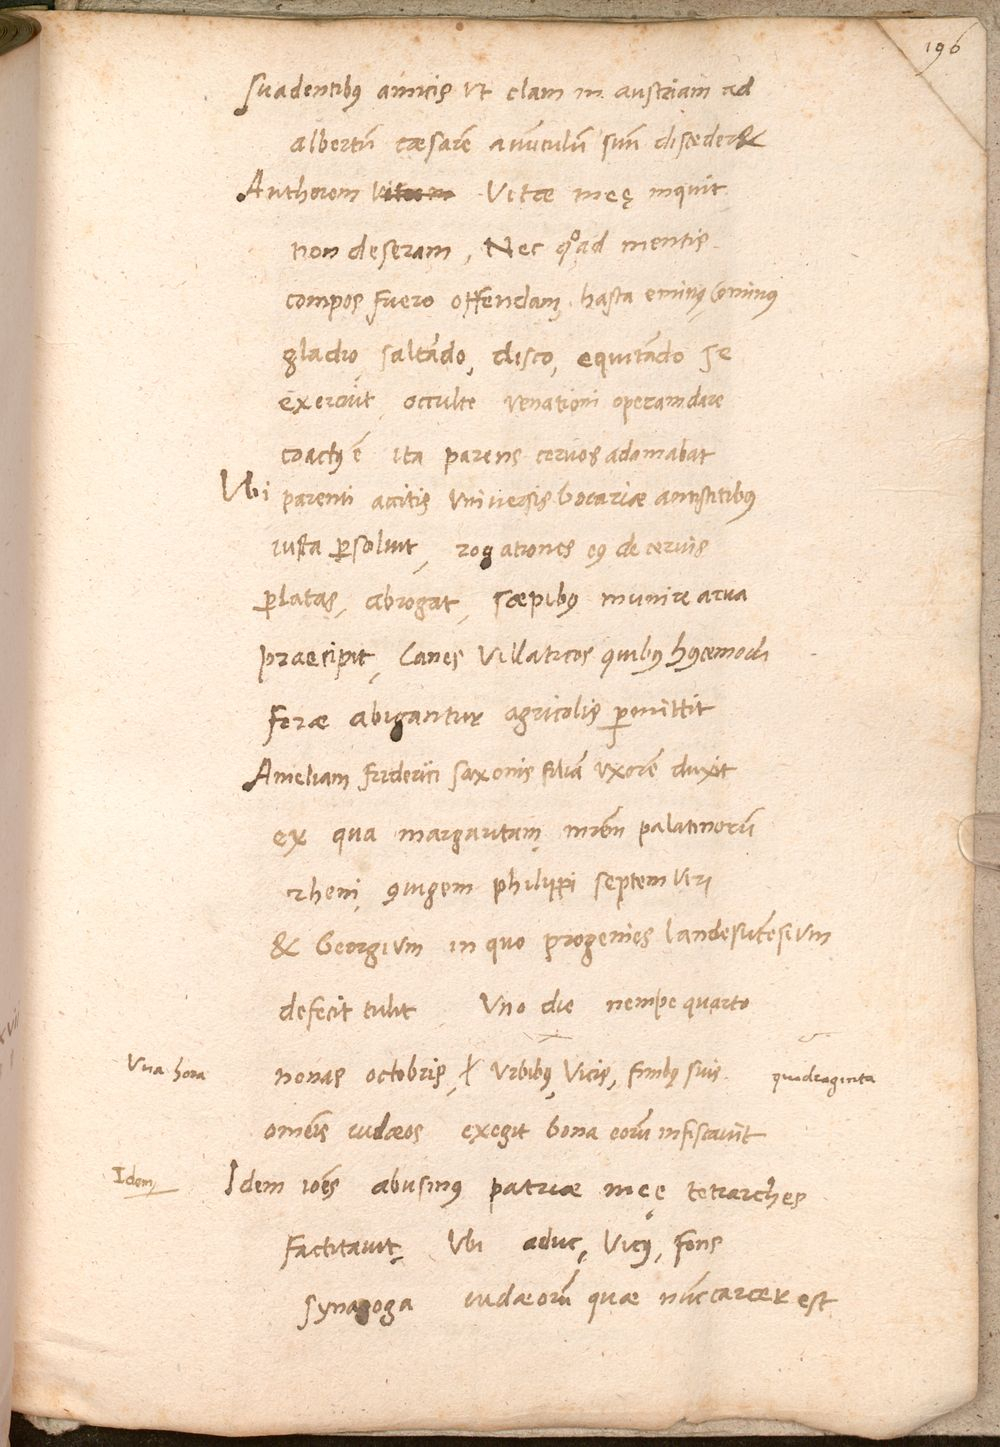 196
Suadentibꝰ amicis vt clam in austriam ad
albertū cæsarē auūculū suū disceder&
Authorem vitam Vitæ meę inquit
non deseram, Nec qͦad mentis
compos fuero offendam, hasta eminꝰ cominꝰ
gladio, saltādo, disco, equitādo se
exercuit occulte venationi operam dare
coactꝰ ē ita parens ceruos adamabat
Vbi parenti accitis vniuersis bocariæ antistitibꝰ
iusta ꝑsoluit, rogationes eꝰ de ceruis
ꝑlatas, abrogat, sæpibꝰ munire arua
praecipit, Canes Villaticos quibꝰ hꝰcemodi
feræ abigantur agricolis ꝑmittit
Ameliam friderici saxonis filiā vxorē duxit
ex qua margaritam, mr̄em palatinorū
rheni, ꝯiugem philippi septem viri
& Georgium in quo progenies landesutēsium
defecit tulit Vno die nempe quarto
Vna hora nonas octobris, Vrbibꝰ, Vicis, finibꝰ suis quadraginta
omēis iudæos exegit bona eorū infiscauit
Idem Idem ioēs abusinꝰ patriæ meę tetrarches
factitauit, Vbi aduc, Vicꝰ, fons
synagoga iudæorū quæ nūc carcer est